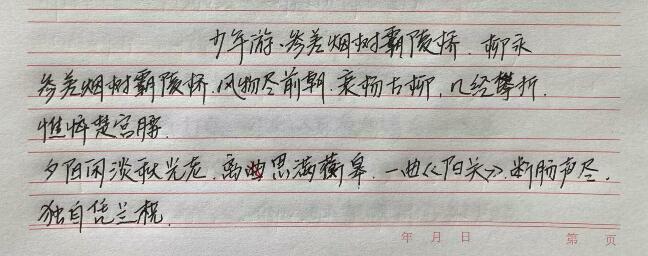 少年游·参差烟树霸陵桥.柳永
参差烟树霸陵桥.风物尽前朝.衰杨古柳,几经攀折.
憔悴楚宫腰.
夕阳闲淡秋光老.离思满蘅皋.一曲《阳关》.断肠声尽.
独自凭兰桡.
年 月 日 第 页